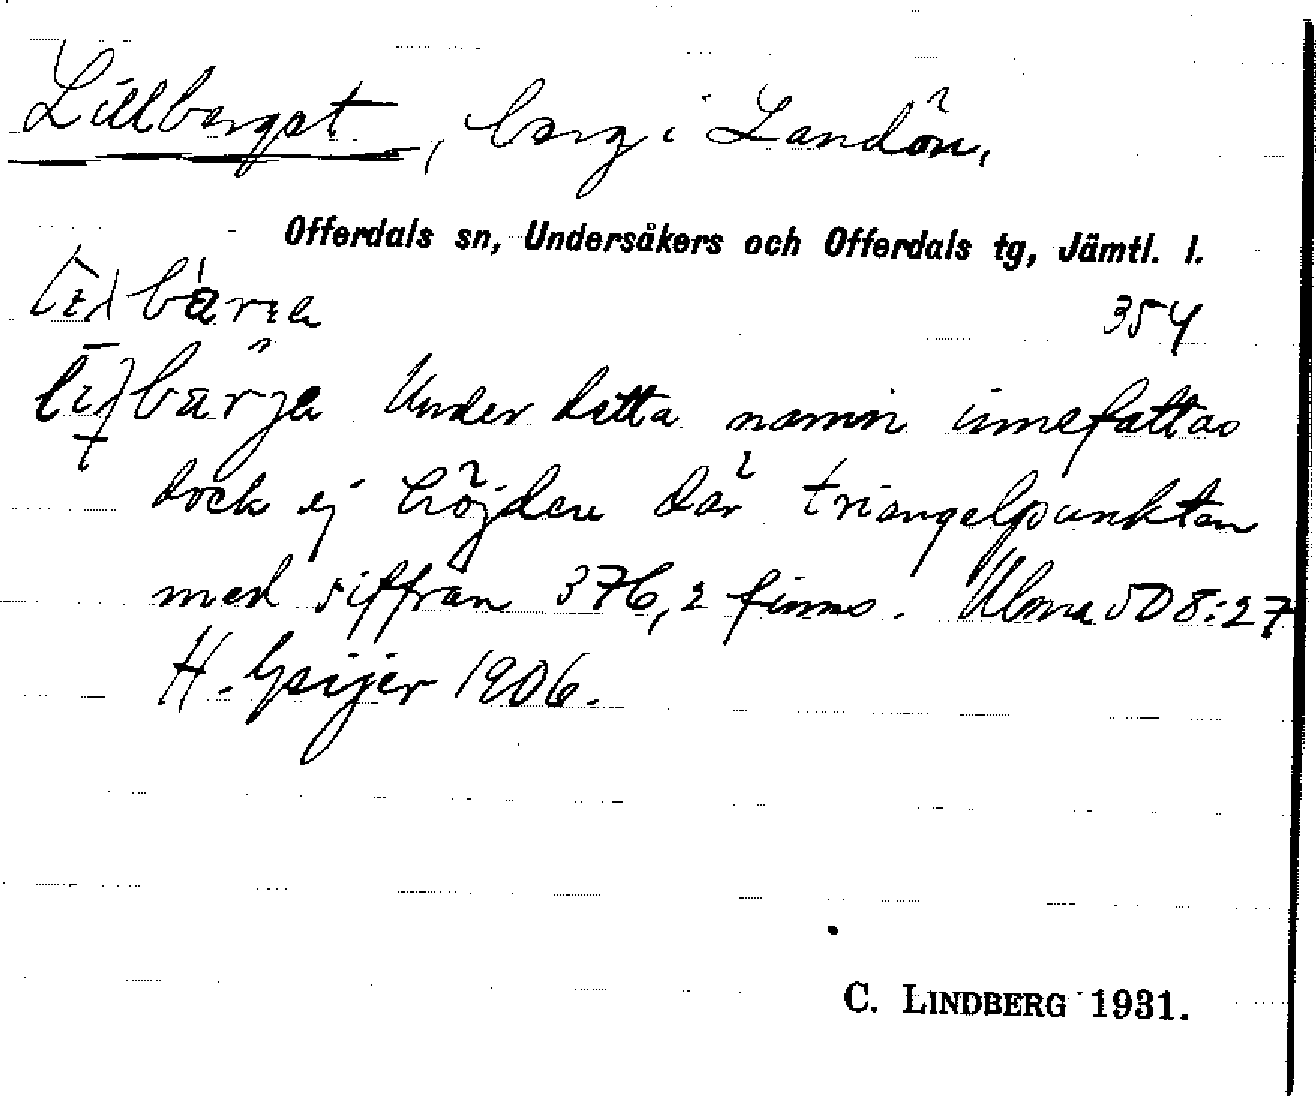 Lillberget, berg i Landön,
Offerdals sn, Undersåkers och Offerdals tg, Jämtl. l.
354
Under detta namn innefattas
dock ej höjden där triangelpunkten
med siffran 376,2 finns. Ulma 508:27
H. Geijer 1906.
C. LINDBERG 1931.